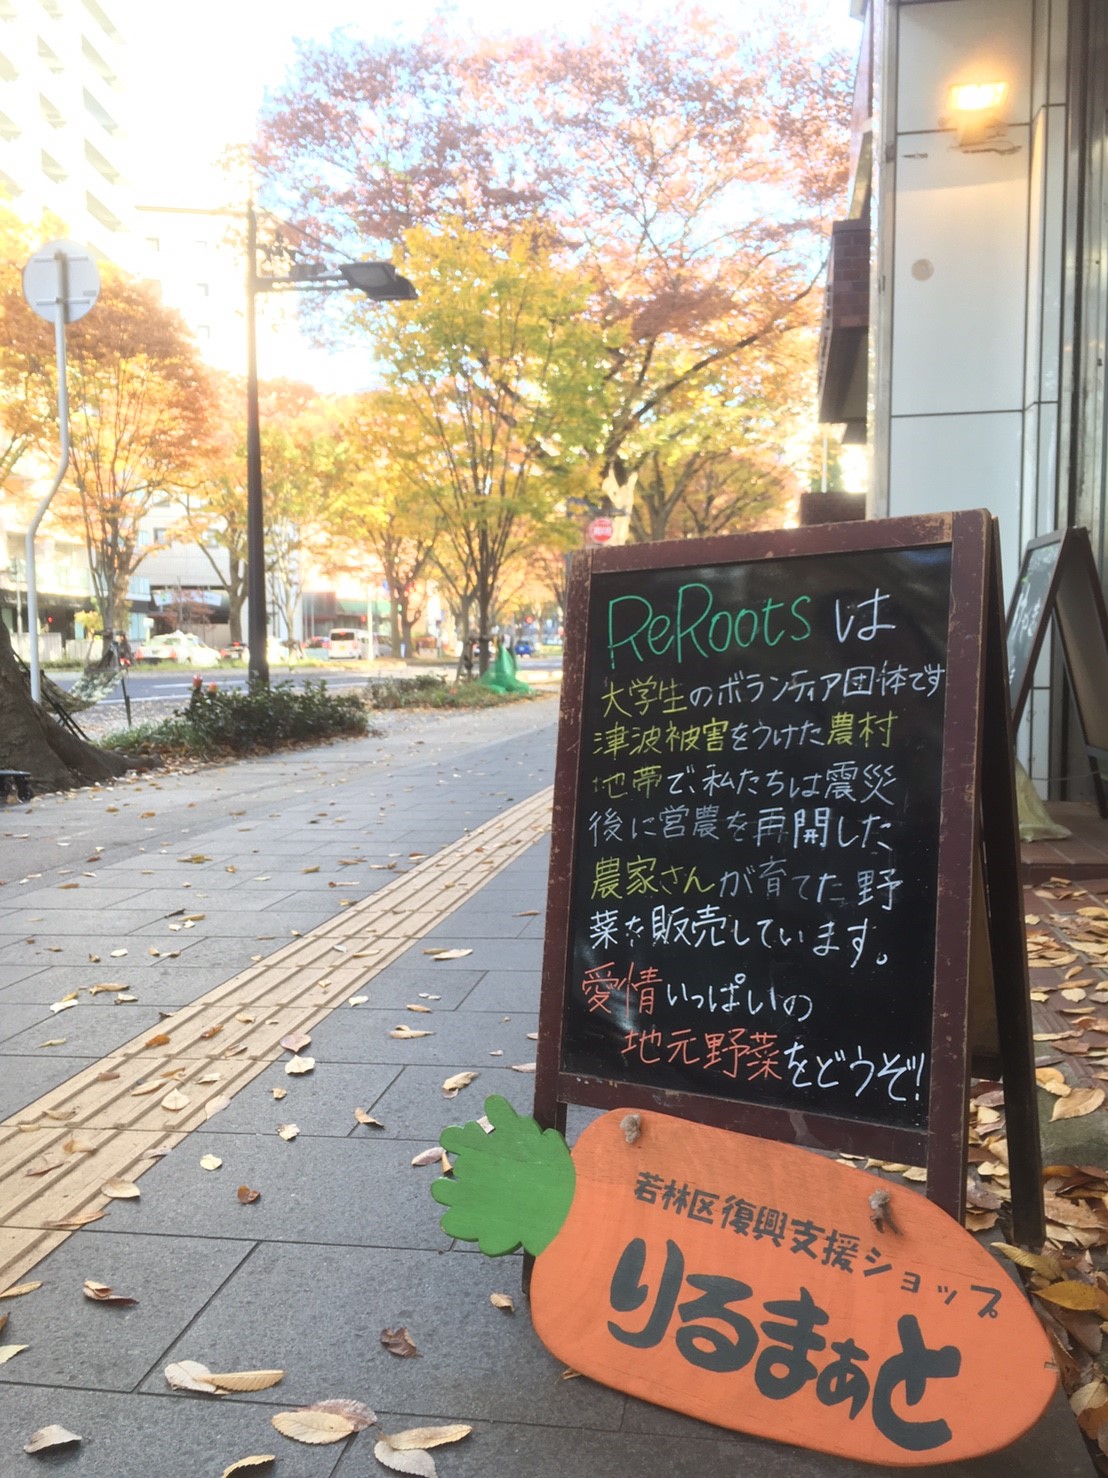 ReRootsは
大学生のボランティア団体です
津波被害をうけた農村
地帯で、私たちは震災
後に営農を再開した
農家さんが育てた野
菜を販売しています。
愛情いっぱいの
地元野菜をどうぞ!
若林区復興支援ショップ
りるまぁと